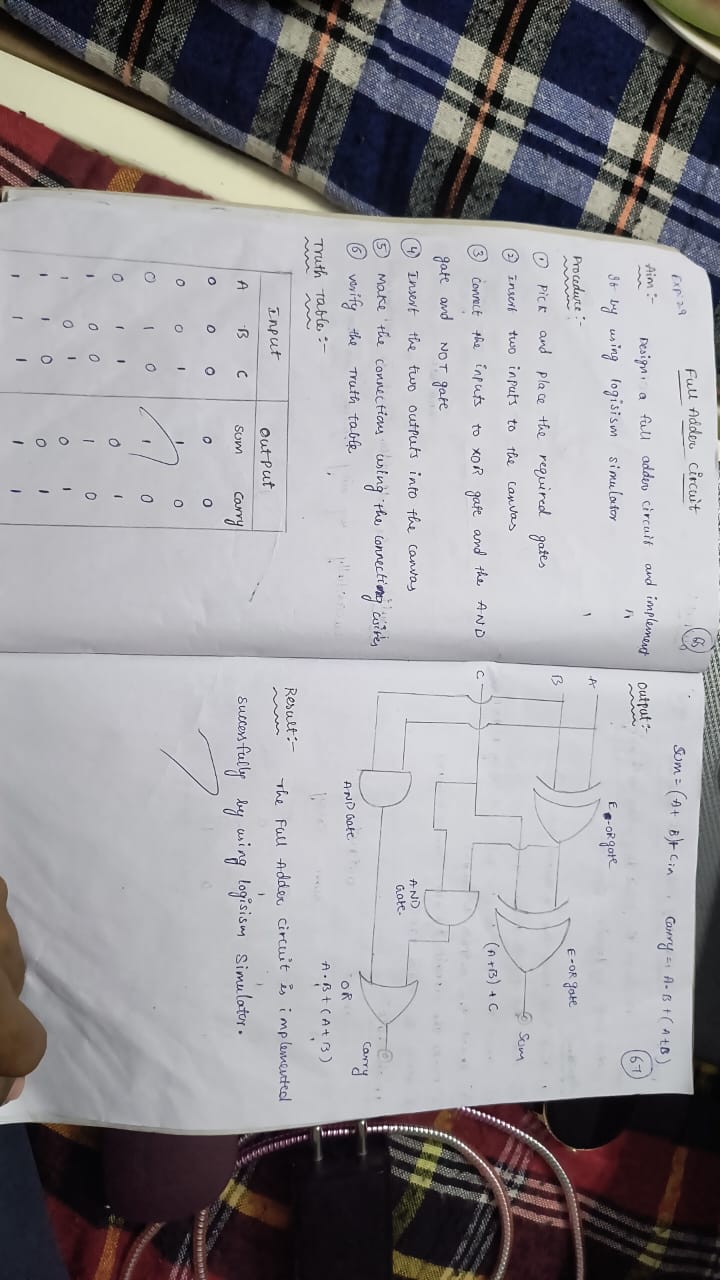 66
Exp:29 Full Adder Circuit
Aim:- Design a full adder circuit and implement
it by using logisism simulator
Procedure:-
① Pick and place the required gates
② insert two inputs to the canvas
③ Connect the inputs to XOR gate and the AND
gate and NOT gate
④ Insert the two outputs into the canvas
⑤ Make the connections using the connecting wires
⑥ verify the truth table
Truth table:-
Input output
A B C sum carry
0 0 0 0 0
0 0 1 1 0
0 1 0 1 0
0 1 1 0 1
1 0 0 1 0
1 0 1 0 1
1 1 0 0 1
1 1 1 1 1
67
Sum = (A+ B)+ Cin , Carry = A·B + (A+B)
output:-
E-OR gate
A
B
E-OR gate
Sum
(A+B)+C
C
AND
Gate
AND Gate
OR
Carry
A·B + (A+B)
Result:- The Full Adder circuit is implemented
successfully by using logisism Simulator.